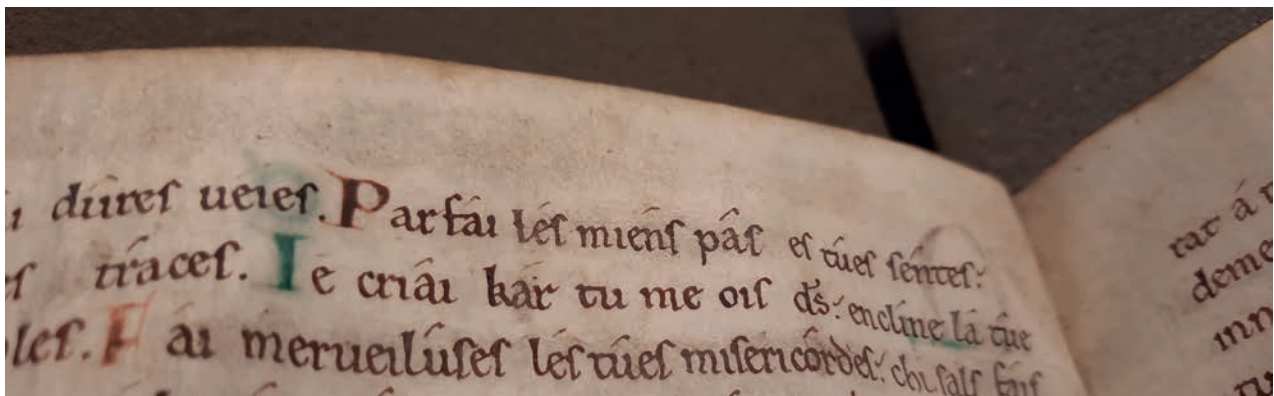 dures ueies. Parfai les miens pas es tues sentes:
traces. Ie criai kar tu me ois ds: encline la tue
les. Fai merueiluses les tues misericordes: chi sals fais
rat á
deme
inn
tu